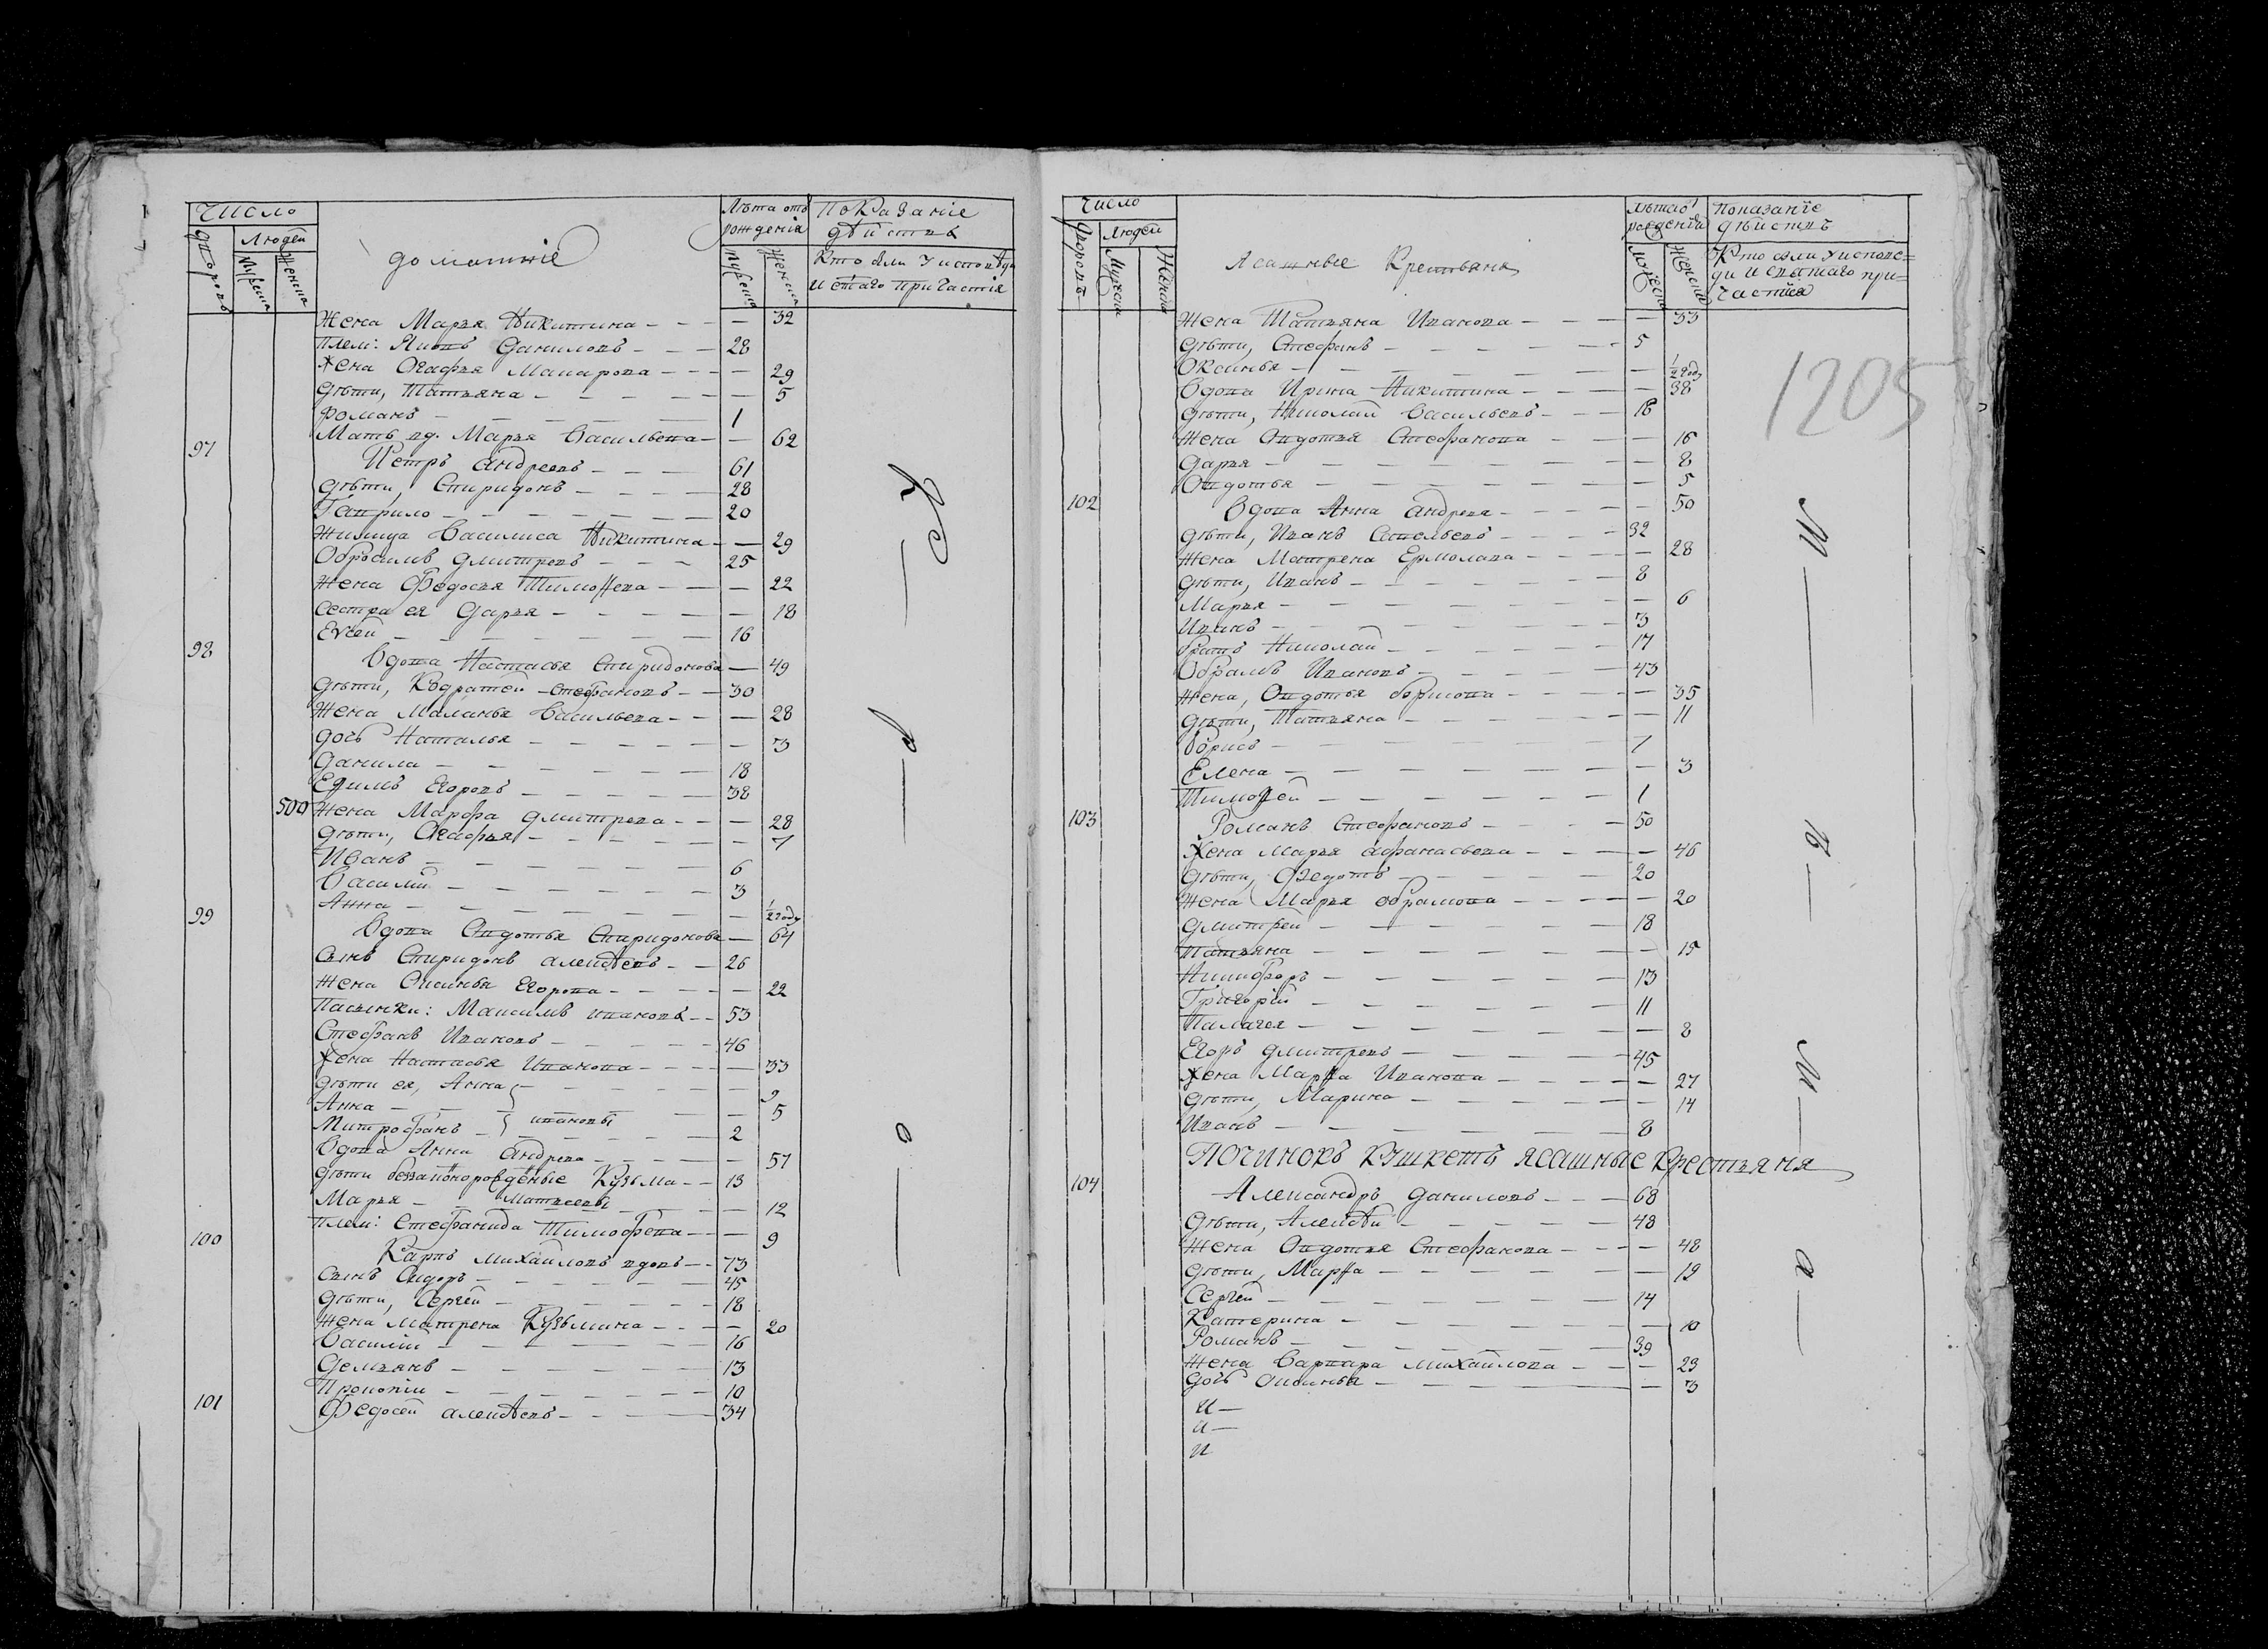 Число
Людей
дворовъ
Мужеска
Женска
домашніе
Лѣта отъ рожденія
Мужеска
Женска
Показаніе дѣйства
Кто были у исповѣди
и святаго причастія
Жена Марья Никитина — 32
Плем: Яковъ Даниловъ — 28
Жена Огафья Макарова — 29
Дѣти, Татьяна — 5
Романъ — 1
Мать вд. Марья Васильева — 62
97 Петръ Андреевъ — 61
Дѣти, Спиридонъ — 28
Гаврило — 20
Жилица Василиса Никитина — 29
Обросимъ Дмитревъ — 25
Жена Федосья Тимоѳева — 22
Сестра ея Дарья — 18
Евсей — 16
98 Вдова Настасья Спиридонова — 49
Дѣти, Кодратей Стефановъ — 30
Жена Маланья Васильева — 28
Дочь Наталья — 3
Данила — 18
Ефимъ Егоровъ — 38
500 Жена Марфа Дмитрева — 28
Дѣти, Агафья — 7
Иванъ — 6
Василій — 3
Анна — 1/2 году
99 Вдова Овдотья Спиридонова — 64
Сынъ Спиридонъ Алексѣевъ — 26
Жена Оксинья Егорова — 22
Пасынки: Максимъ Ивановъ — 53
Стефанъ Ивановъ — 46
Жена Настасья Иванова — 33
Дѣти ея, Анна — 9
Анна — 5
Митрофанъ } Ивановы — 2
Вдова Анна Андрева — 57
Дѣти беззаконорожденые Кузьма — 13
Марья — Матвеевы — 12
Плем: Стефанида Тимофева — 9
100 Карпъ Михайловъ вдовъ — 73
Сынъ Сидоръ — 45
Дѣти, Сергей — 18
Жена Матрена Кузьмина — 20
Василій — 16
Демьянъ — 13
Прокопій — 10
101 Федосей Алексѣевъ — 34
Число
Людей
дворовъ
Мужеска
Женска
Ясашные Крестьяня
Лѣта отъ рожденія
Мужеска
Женска
Показанїе дѣйствъ
Кто были у исповѣ=
ди и святаго при=
частїя
1205
Жена Татьяна Иванова — 33
Дѣти, Стефанъ — 5
Оксинья — 1/2 году
Вдова Ирина Никитина — 38
Дѣти, Николай Васильевъ — 16
Жена Овдотья Стефанова — 16
Дарья — 8
Овдотья — 5
102 Вдова Анна Андрева — 50
Дѣти, Иванъ Савельевъ — 32
Жена Матрена Ермолаева — 28
Дѣти, Иванъ — 8
Марья — 6
Иванъ — 3
Братъ Николай — 17
Обрамъ Ивановъ — 43
Жена, Овдотья — 35
Дѣти, Татьяна — 11
Борисъ — 7
Елена — 3
Тимоѳей — 1
103 Романъ Стефановъ — 50
Жена Марья Афанасьева — 46
Дѣти, Федотъ — 20
Жена Марья Обрамова — 20
Дмитрей — 18
Татьяна — 15
Никифоръ — 13
Григорій — 11
Палагея — 8
Егоръ Дмитревъ — 45
Жена Марѳа Иванова — 27
Дѣти, Марина — 14
Иванъ — 8
Починокъ Кушкетъ ясашные крестьяня
104 Александръ Даниловъ — 68
Дѣти, Алексѣй — 48
Жена Овдотья Стефанова — 48
Дѣти, Марѳа — 19
Сергей — 14
Катерина — 10
Романъ — 39
Жена Варвара Михайлова — 23
Дочь Оксинья — 3
И —
И —
И